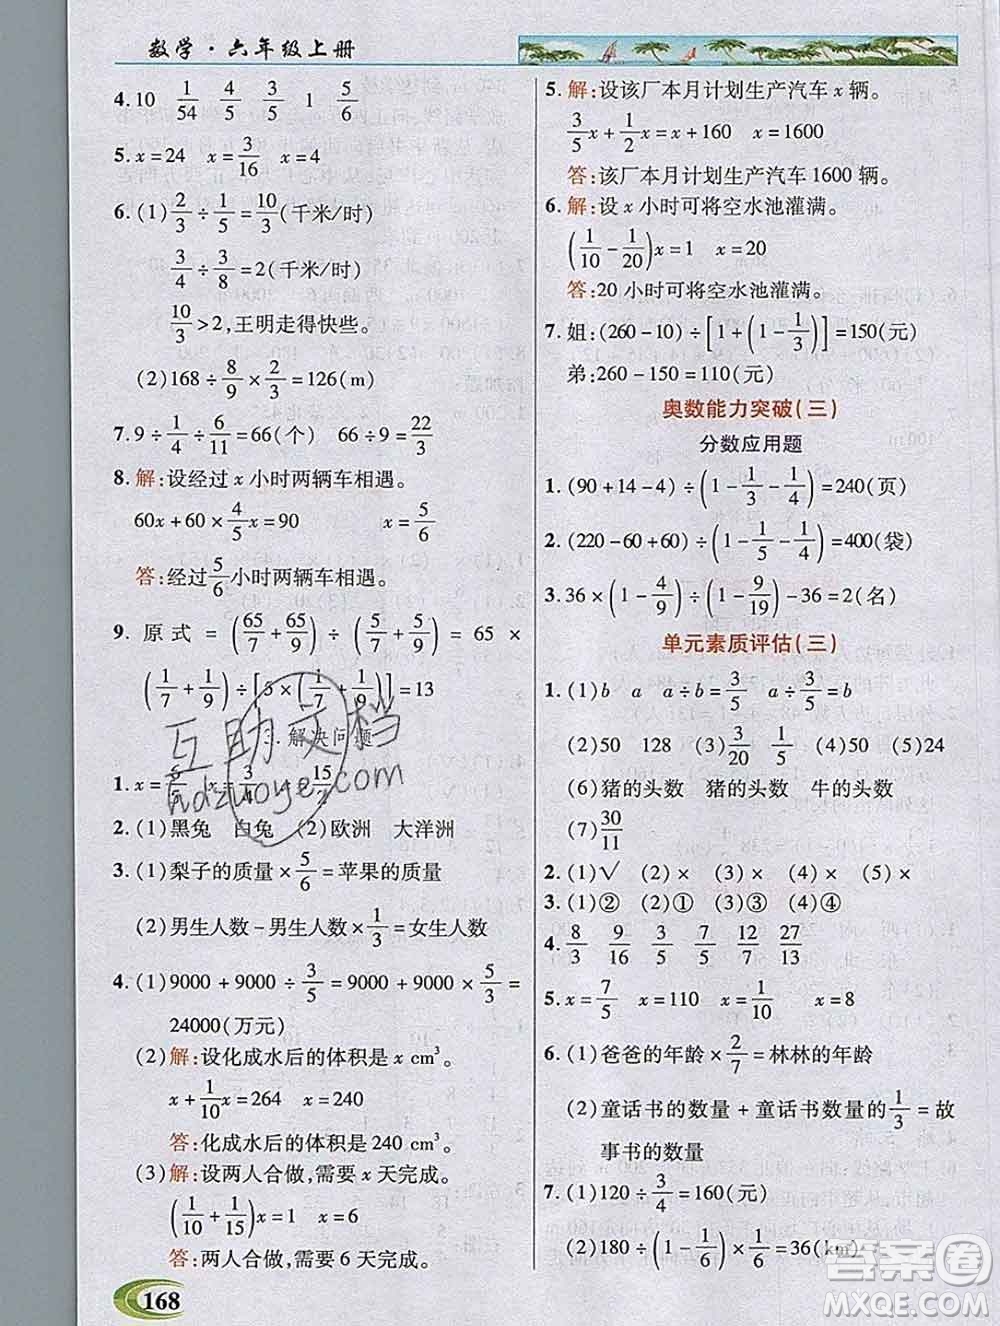 数学·六年级上册
4. 10 1/54 4/5 3/5 1 5/6
5. x=24 x=3/16 x=4
6. (1) 2/3÷1/5=10/3(千米/时)
3/4÷3/8=2(千米/时)
10/3>2,王明走得快些。
(2)168÷8/9×2/3=126(m)
7. 9÷1/4÷6/11=66(个) 66÷9=22/3
8. 解:设经过x小时两辆车相遇。
60x+60×4/5x=90 x=5/6
答:经过5/6小时两辆车相遇。
9. 原式=(65/7+65/9)÷(5/7+5/9)=65×
(1/7+1/9)÷[5×(1/7+1/9)]=13
解决问题
2. (1)黑兔 白兔 (2)欧洲 大洋洲
3. (1)梨子的质量×5/6=苹果的质量
(2)男生人数-男生人数×1/3=女生人数
4. (1)9000+9000÷3/5=9000+9000×5/3=
24000(万元)
(2)解:设化成水后的体积是x cm³。
x+1/10x=264 x=240
答:化成水后的体积是240 cm³。
(3)解:设两人合做,需要x天完成。
(1/10+1/15)x=1 x=6
答:两人合做,需要6天完成。
168
5. 解:设该厂本月计划生产汽车x辆。
3/5x+1/2x=x+160 x=1600
答:该厂本月计划生产汽车1600辆。
6. 解:设x小时可将空水池灌满。
(1/10-1/20)x=1 x=20
答:20小时可将空水池灌满。
7. 姐:(260-10)÷[1+(1-1/3)]=150(元)
弟:260-150=110(元)
奥数能力突破(三)
分数应用题
1. (90+14-4)÷(1-1/3-1/4)=240(页)
2. (220-60+60)÷(1-1/5-1/4)=400(袋)
3. 36×(1-4/9)÷(1-9/19)-36=2(名)
单元素质评估(三)
1. (1)b a a÷b=3/5 a÷3/5=b
(2)50 128 (3)3/20 (4)50 (5)24
(6)猪的头数 猪的头数 牛的头数
(7)30/11
2. (1)√ (2)× (3)× (4)× (5)×
3. (1)② (2)① (3)④ (4)④
4. 8/3 9/16 3/5 7/5 27/16 27/13
5. x=7/5 x=110 x=1/10 x=8
6. (1)爸爸的年龄×2/7=林林的年龄
(2)童话书的数量+童话书数量的1/3=故
事书的数量
7. (1)120÷3/4=160(元)
(2)180÷(1-1/6)×1/6=36(km)
互助文档
hdzuoye.com
答案圈
MXQE.COM